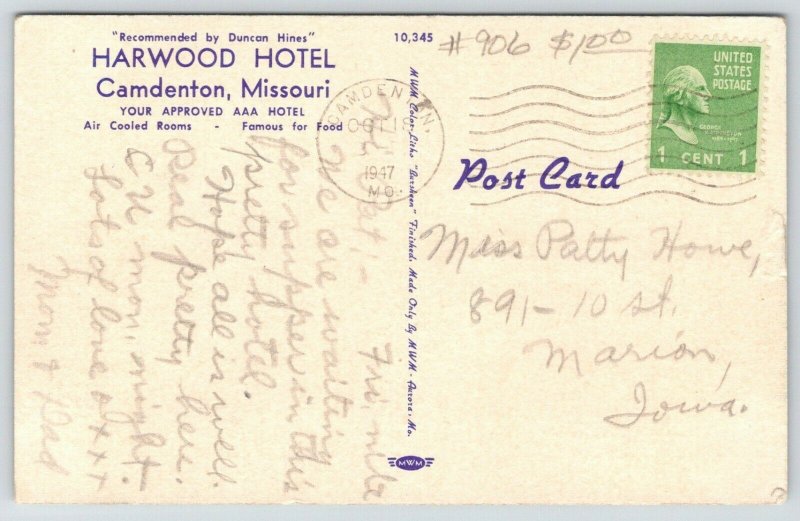 "Recommended by Duncan Hines"
HARWOOD HOTEL
Camdenton, Missouri
YOUR APPROVED AAA HOTEL
Air Cooled Rooms - Famous for Food
10,345
#906 $1.00
UNITED
STATES
POSTAGE
GEORGE
WASHINGTON
1 CENT 1
CAMDENTON,
OCT 18
1947
MO.
Post Card
MWM Color-Litho "Lursheen" Finished, Made Only By MWM - Aurora, Mo.
MWM
Fri. nite
Pat: -
We are waiting
for supper in this
pretty hotel.
Hope all is well.
Real pretty here.
C U mon. night.
Lots of love & xxx
Mom & Dad
Miss Patty Howe,
891-10 St.
Marion,
Iowa.